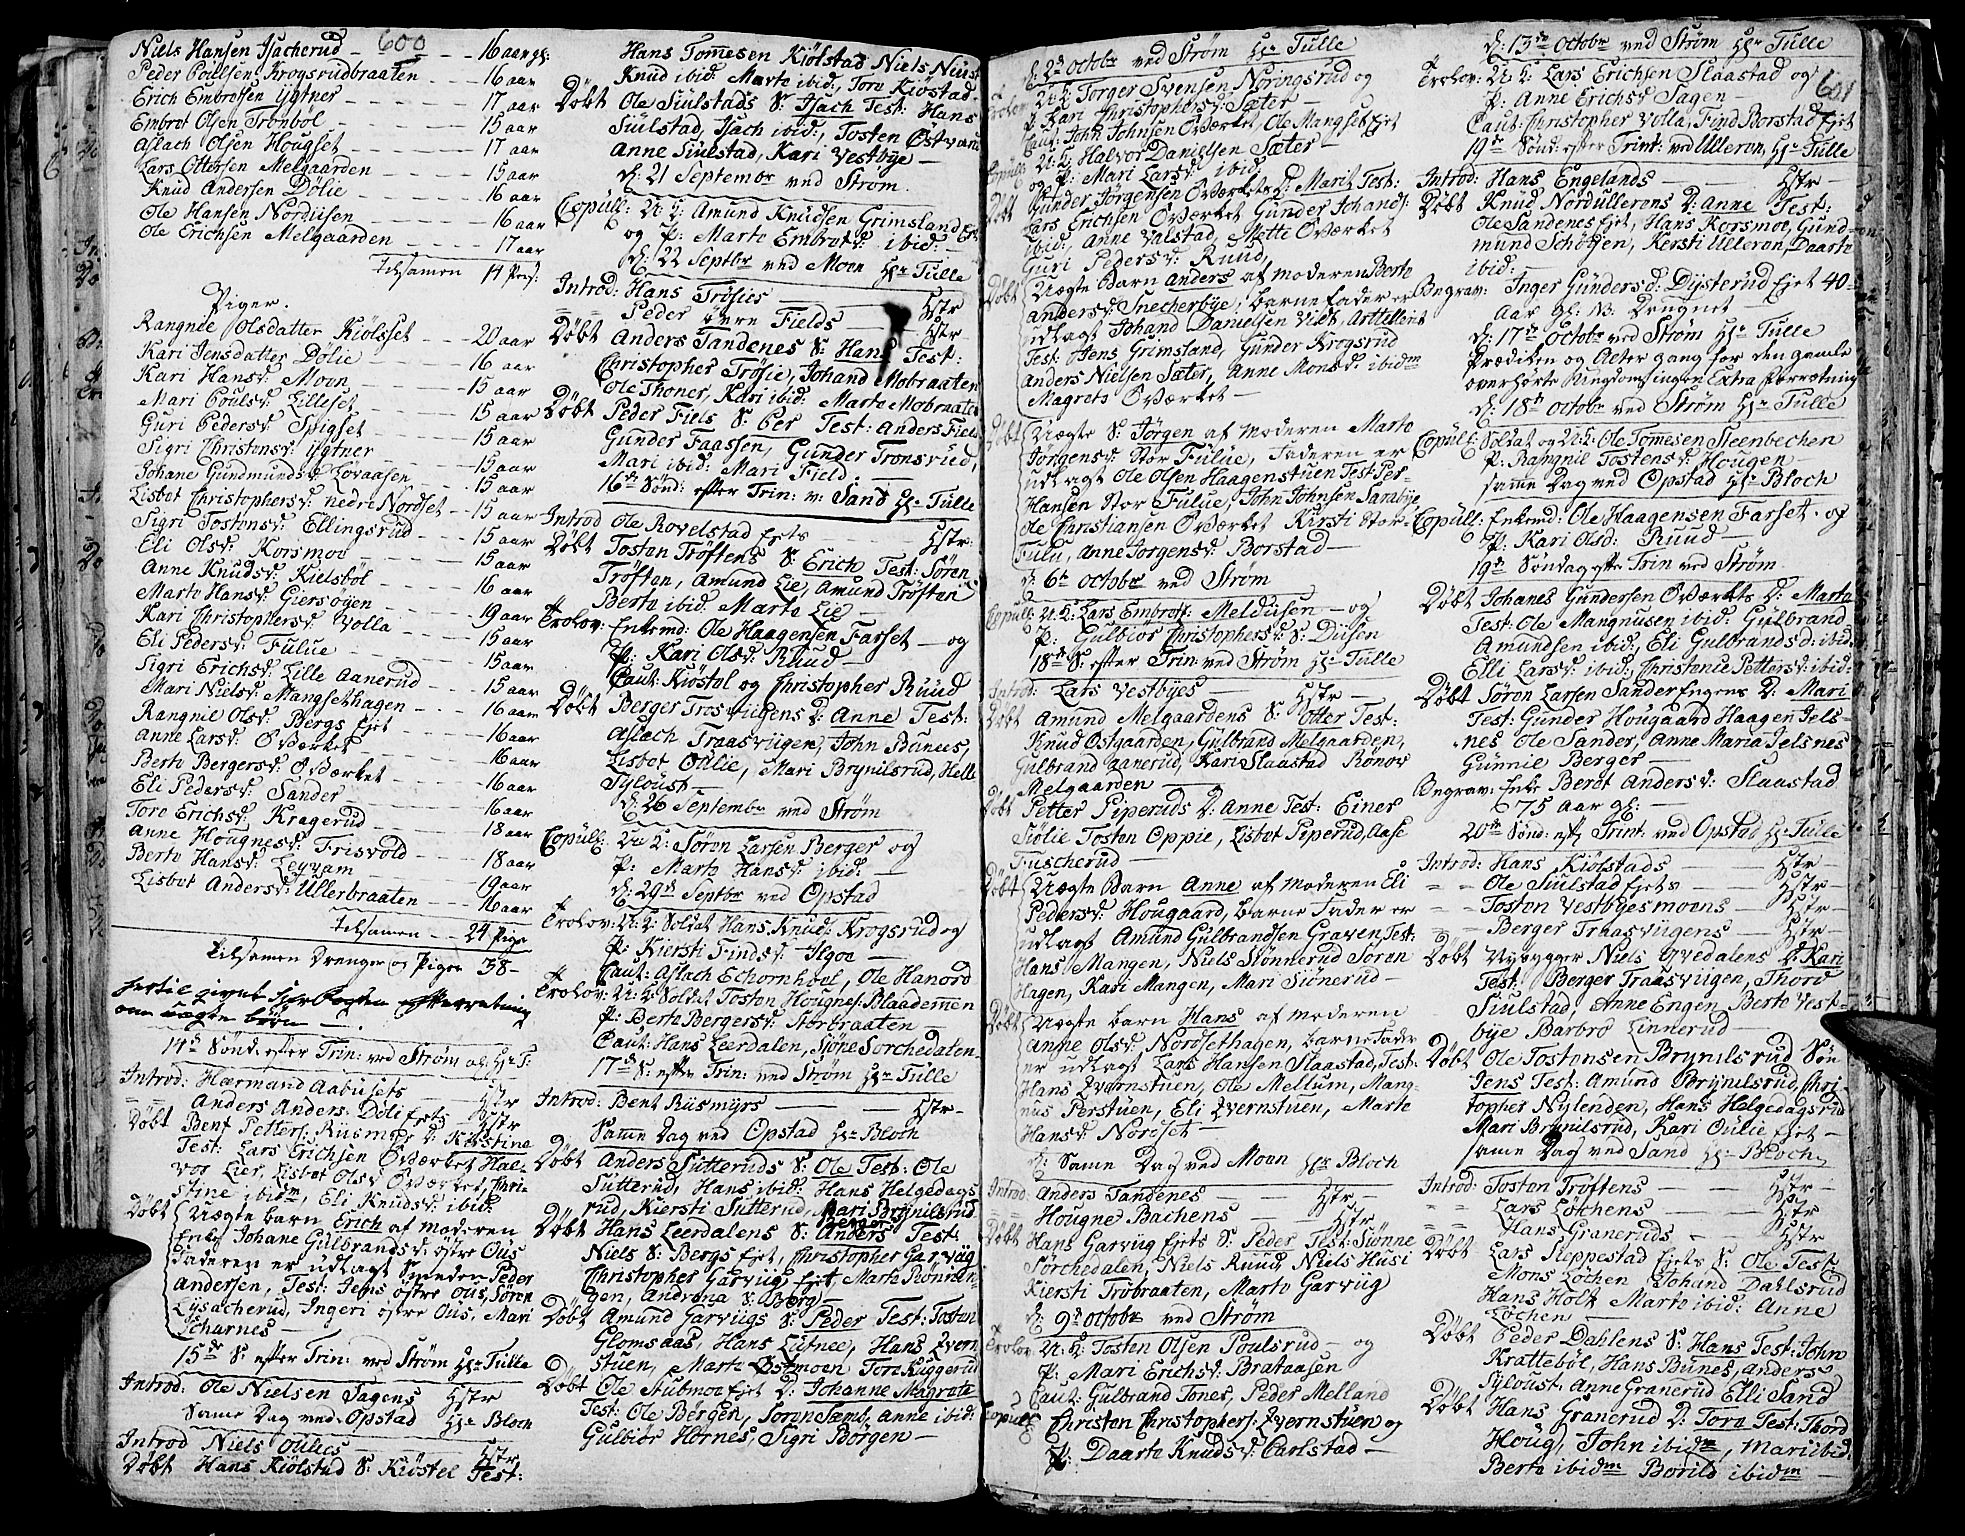 600
Niels Hansen Isacherud - 16 aar gl:
Peder Poulsen Krogsrudbraaten - 16 aar
Erich Embretsen Ygtner - 17 aar
Embret Olsen Trønbøl - 15 aar
Aslach Olsen Hougset - 17 aar
Lars Ottersen Melgaarden - 15 aar
Knud Andersen Dølie - 16 aar
Ole Hansen Nordiisen - 16 aar
Ole Erichsen Melgaarden - 17 aar
Tilsamen 14 Pers:
Piger.
Rangnee Olsdatter Kiølsset - 20 aar
Kari Jensdatter Dølie - 16 aar
Kari Hansd: Moen - 15 aar
Mari Poulsd: Lilleset - 15 aar
Guri Pedersd: Spigset - 15 aar
Sigri Christensd: Ygtner - 15 aar
Johane Gundmundsd: Løvaasen - 15 aar
Lisbet Christophersd: nedre Nordset - 15 aar
Sigri Tostensd: Ellingsrud - 15 aar
Eli Olsd: Korsmoe - 15 aar
Anne Knudsd: Kielsbøl - 16 aar
Marte Hansd: Giersøyen - 19 aar
Kari Christophersd: Volla - 15 aar
Eli Pedersd: Fulue - 15 aar
Sigri Erichsd: Lille Aanerud - 15 aar
Mari Nielsd: Mangsethagen - 16 aar
Rangnil Olsd: Bergs Ejet - 16 aar
Anne Larsd: O Værket - 16 aar
Berte Bergersd: O Værket - 16 aar
Eli Pedersd: Sander - 16 aar
Tore Erichsd: Kragerud - 18 aar
Anne Hougnesd: Frisvold - 18 aar
Berte Hansd: Leyram - 19 aar
Lisbet Andersd: Ullerbraaten - 16 aar
Tilsamen - 24 Piger
Tilsamen Drenger og Piger 38 -
hertil givet Hør Fogden efterretning
om uægte børn -
14de Sönd: efter Trin: ved Strøm af Hr T.
Introd: Hærmand Aabusets Hstr
- Anders Anders: Døli Ejets - Hstr
Døbt Bent Petters: Riismyr D: Kirstine
Test: Lars Erichsen O Værket Hal-
vor Lier, Lisbet Olsd O Værket, Chri-
stine ibidm, Eli Knudsd: ibid:
Døbt Uægte barn Erich af moderen
Enke Johane Gulbrandsd: østre Ous
Faderen er udlagt Smeden Peder
Andersen, Test: Jens østre Ous, Sören
Lysacherud, Ingeri østre Ous, Mari
Scharnes -
15de S: efter Trin: ved Strøm Hr Tulle
Introd: Ole Nielsen Sagens Hstr
Same Dag ved Opstad Hr Bloch
Introd Niels Oulies - Hstr
Døbt Hans Kiølstad S: Kiøstel Test:
Hans Tomesen Kiølstad Niels Niust
Knud ibid: Marte ibid: Tore Kiøstad -
Døbt Ole Siulstads S: Isach Test: Hans
Siulstad, Isach ibid:, Tosten Østvang
Anne Siulstad, Kari Vestbye -
d: 21 Septembr ved Strøm.
Copull: U: K: Amund Knudsen Grimsland Ejet
og P: Marte Embretsd: ibid:
d: 22 Septbr ved Moen Hr Tulle
Introd: Hans Trøsies - Hstr
- Peder øvre Fields - Hstr
Døbt Anders Tandenes S: Hans Test:
Christopher Trøsie, Johand Mobraaten
Ole Thoner, Kari ibid: Marte Mobraaten
Døbt Peder Fiels S: Per Test: Anders Fiels
Gunder Faassen, Gunder Tronsrud,
Mari ibid: Mari Field. -
16de Sönd: efter Trin: v: Sand Hr Tulle
Introd Ole Rovelstad Ejets - Hstr:
Døbt Tosten Tröftens S: Erich Test: Sören
Tröften, Amund Lie, Amund Tröften
Berte ibid: Marte Lie -
Trolov: Enkemd: Ole Haagensen Farset - og
P: Kari Olsd: Ruud -
Caut: Kiøstol og Christopher Ruud
Døbt Berger Trosviigens D: Anne Test:
Aslach Traasviigen, John Bunees,
Lisbet Oulie, Mari Brynilsrud, Helle
Syloust -
d: 26 Septembr ved Strøm
Copull: U: K: Søren Larsen Berger og
P: Marte Hansd: ibid: -
d: 29de Septbr ved Opstad
Trolov: U: K: Soldat Hans Knud: Krogsrud og
P: Kiersti Findsd: Ilgoe -
Caut: Aslach Echornhoel, Ole Hanord
Trolov: U: K: Soldat Tosten Hougnes: Blaadermen
P: Berte Bergersd: Storbraaten -
Caut: Hans Leerdalen, Siøne Sorchedalen
17de S: efter Trin: ved Strøm Hr Tulle
Introd: Bent Riismyrs - Hstr -
Same Dag ved Opstad Hr Bloch
Døbt Anders Sutteruds S: Ole Test: Ole
Sutterud, Hans ibid: Hans Helgedags
rud, Kiersti Sutterud, Mari Brynilsrud
Døbt Hans Leerdalens S: Anders Test:
Niels S: Bergs Ejet, Christopher Garviig
Christopher Garviig Ejet, Marte Rönnin-
gen, Andrena S: Berg -
Døbt Amund Garviigs S: Peder Test: Tosten
Glomsaas, Hans Lufnee, Hans Qvern-
stuen, Marte Østmoen Tore Kuggerud
Døbt Ole Stubmoe Ejet D: Johanne Magrete
Test: Ole Børgen, Soren Samb, Anne ibid:
Gulbiør Hornes, Sigri Børgen -
d: 2de Octobr ved Strøm Hr Tulle
Trolov: U: K: Torger Svensen Noringsrud og
P: Kari Christophersd: Sæter -
Caut: John Johnsen O Værket, Ole Mangset Ejet
Copull: U: K: Halvor Danielsen Sæter -
og P: Mari Larsd: ibid:
Døbt Gunder Jørgensen O Værkets D: Marit Test:
Lars Erichsen O Værket Gunder Johands:
ibid:, Anne Valstad, Mette O Værket
Guri Pedersd: Ruud,
Døbt Uægte Barn Anders af moderen Berte
Andersd: Snecherbye, Barnefader er
udlagt Johand Danielsen Vix, Artillerist
Test: Jens Grimsland, Gunder Krogsrud
Anders Nielsen Sæter, Anne Monsd: ibidm
Magrete O Værket -
Døbt Uægte S: Jørgen af moderen Marte
Jørgensd: Stor Fulue, Faderen er
udlagt Ole Olsen Haagenstuen Test: Per
Hansen Stor Fulue, John Johnsen Sambye,
Ole Christiansen O Værket Kirsti Stor-
Fulu, Anne Jorgensd: Borstad -
d: 6te Octobr ved Strøm
Copull: U: K: Lars Embretf: Meldiisen - og
P: Gulbiør Christophersd: S: Diisen
18de S: efter Trin: ved Strøm Hr Tulle
Introd: Lars Vestbyes - Hstr -
Døbt Amund Melgaardens S: Otter Test:
Knud Ostgaarden, Gulbrand Melgaarden,
Gulbrand Aanerud, Kari Slaastad Rønov
Melgaarden -
Døbt Petter Piperuds D: Anne Test: Einer
Siølie Tosten Oppie, Lisbet Piperud, Aase
Fuscherud -
Døbt Uægte Barn Anne af moderen Eli
Pedersd: Hougaard, Barne Fader er
udlagt Amund Gulbrandsen Graven, Test:
Hans Mangen, Niels Siønnerud Soren
Hagen, Kari Mangen, Mari Siönerud -
Døbt Uægte barn Hans af moderen
Anne Olsd: Nordsethagen, barne Fader
er udlagt Lars Hansen Slaastad, Test:
Hans Qvernstuen, Ole Mellum, Mang-
nus Perstuen, Eli Qvernstuen, Marte
Hansd: Nordset -
d: Same Dag ved Moen Hr Bloch
Introd: Anders Tandenes - Hstr -
Hougne Bachens - Hstr
Døbt Hans Garviig Ejets S: Peder Test: Siønne
Sorchedalen, Niels Ruud, Niels Husi
Kiersti Trøbraaten, Marte Garviig
d: 9de Octobr ved Strøm
Trolov: U: K: Tosten Olsen Poulsrud - og
P: Mari Erichsd: Brataasen
Caut: Gulbrand Tones, Peder Melland
Copull: Christen Christophers: Qvernstuen og
P: Daarte Knudsd: Carlstad -
d: 13de Octobr ved Strøm Hr Tulle
601
Trolov: U: K: Lars Erichsen Slaastad og
P: Anne Erichsd Sagen -
Caut: Christopher Volla, Find Borstad Ejet
19de Sönd: efter Trint: ved Ulleren, Hr Tulle
Introd: Hans Engelands - Hstr
Døbt Knud Nordullerens D: Anne Test:
Ole Sandenes Ejet, Hans Korsmoe, Gund-
mund Schotgen, Kersti Ulleren, Daarte
ibid: -
Begrav: Inger Gundersd: Dysterud Ejet 40 -
Aar gl: NB: Drugnet
d: 17de Octobr ved Strøm Hr Tulle
Prædiken og Alter gang for den gamle
overhørte Ungdom, ingen Extra Forretning
d: 18de Octobr ved Strøm Hr Tulle
Copull: Soldat og U: K: Ole Tomesen Steenbechen
P: Rangnil Tostensd: Hougen -
samme Dag ved Opstad Hr Bloch
Copull: Enkemd: Ole Haagensen Farset - og
P: Kari Olsd: Ruud -
19de Søndag efter Trin ved Strøm.
Døbt Johanes Gundersen O Værkets D: Marte
Test: Ole Mangnusen ibid: Gulbrand
Amundsen ibid:, Eli Gulbrandsd: ibid:
Elli Larsd: ibid:, Christenie Pettersd: ibid:
Døbt Søren Larsen Sander Engens D: Mari
Test: Gunder Hougaard Haagen Jels-
nes Ole Sander, Anne Maria Jelsnes
Gunnie Berger -
Begrav: Enke Beret Andersd: Slaastad
75 Aar gl: -
20de Sönd: eft Trint: ved Opstad Hr Tulle
Introd: Hans Kiølstads - Hstr -
- Ole Siulstad Ejets - Hstr -
- Tosten Vestbyesmoens - Hstr -
- Berger Traasviigens - Hstr -
Døbt Nybygger Niels Yvedalens D: Kari
Test: Berger Traasviigen, Thord
Siulstad, Anne Engen, Berte Vest-
bye Barbro Linnerud
Døbt Ole Tostensen Brynilsrud Søn
Jens Test: Amund Brynilsrud, Chri-
stopher Nylenden, Hans Helgedagsrud
Mari Brynilsrud, Kari Oulie Ejet -
same Dag ved Sand Hr Bloch
Introd: Tosten Trøftens - Hstr -
- Lars Løchens - Hstr
- Hans Graneruds - Hstr
Døbt Lars Sleppestad Ejets S: Ole Test
Mons Løchen Johand Dahlsrud
Hans Holt Marte ibid: Anne
Løchen -
Døbt Peder Dahlens S: Hans Test: John
Krattebøl, Hans Bunes, Anders
Syloust, Anne Granerud Elli Sand
Døbt Hans Granerud D: Tore Test: Thord
Houg, John ibidm, Mari ibid:
Berte ibidm Borild ibidm -